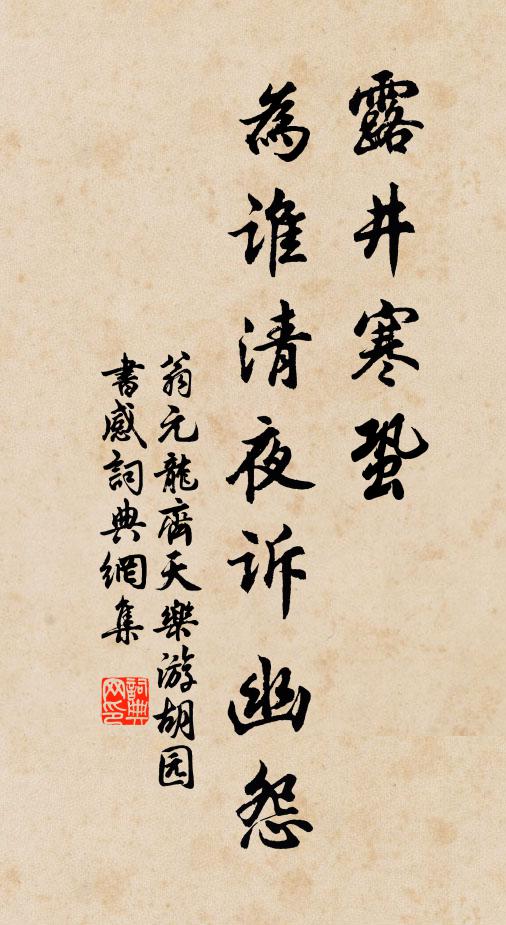 露井寒蛩
為誰清夜訴幽怨
翁元龍齊天樂游胡园
書感詞典網集
詞典
网印